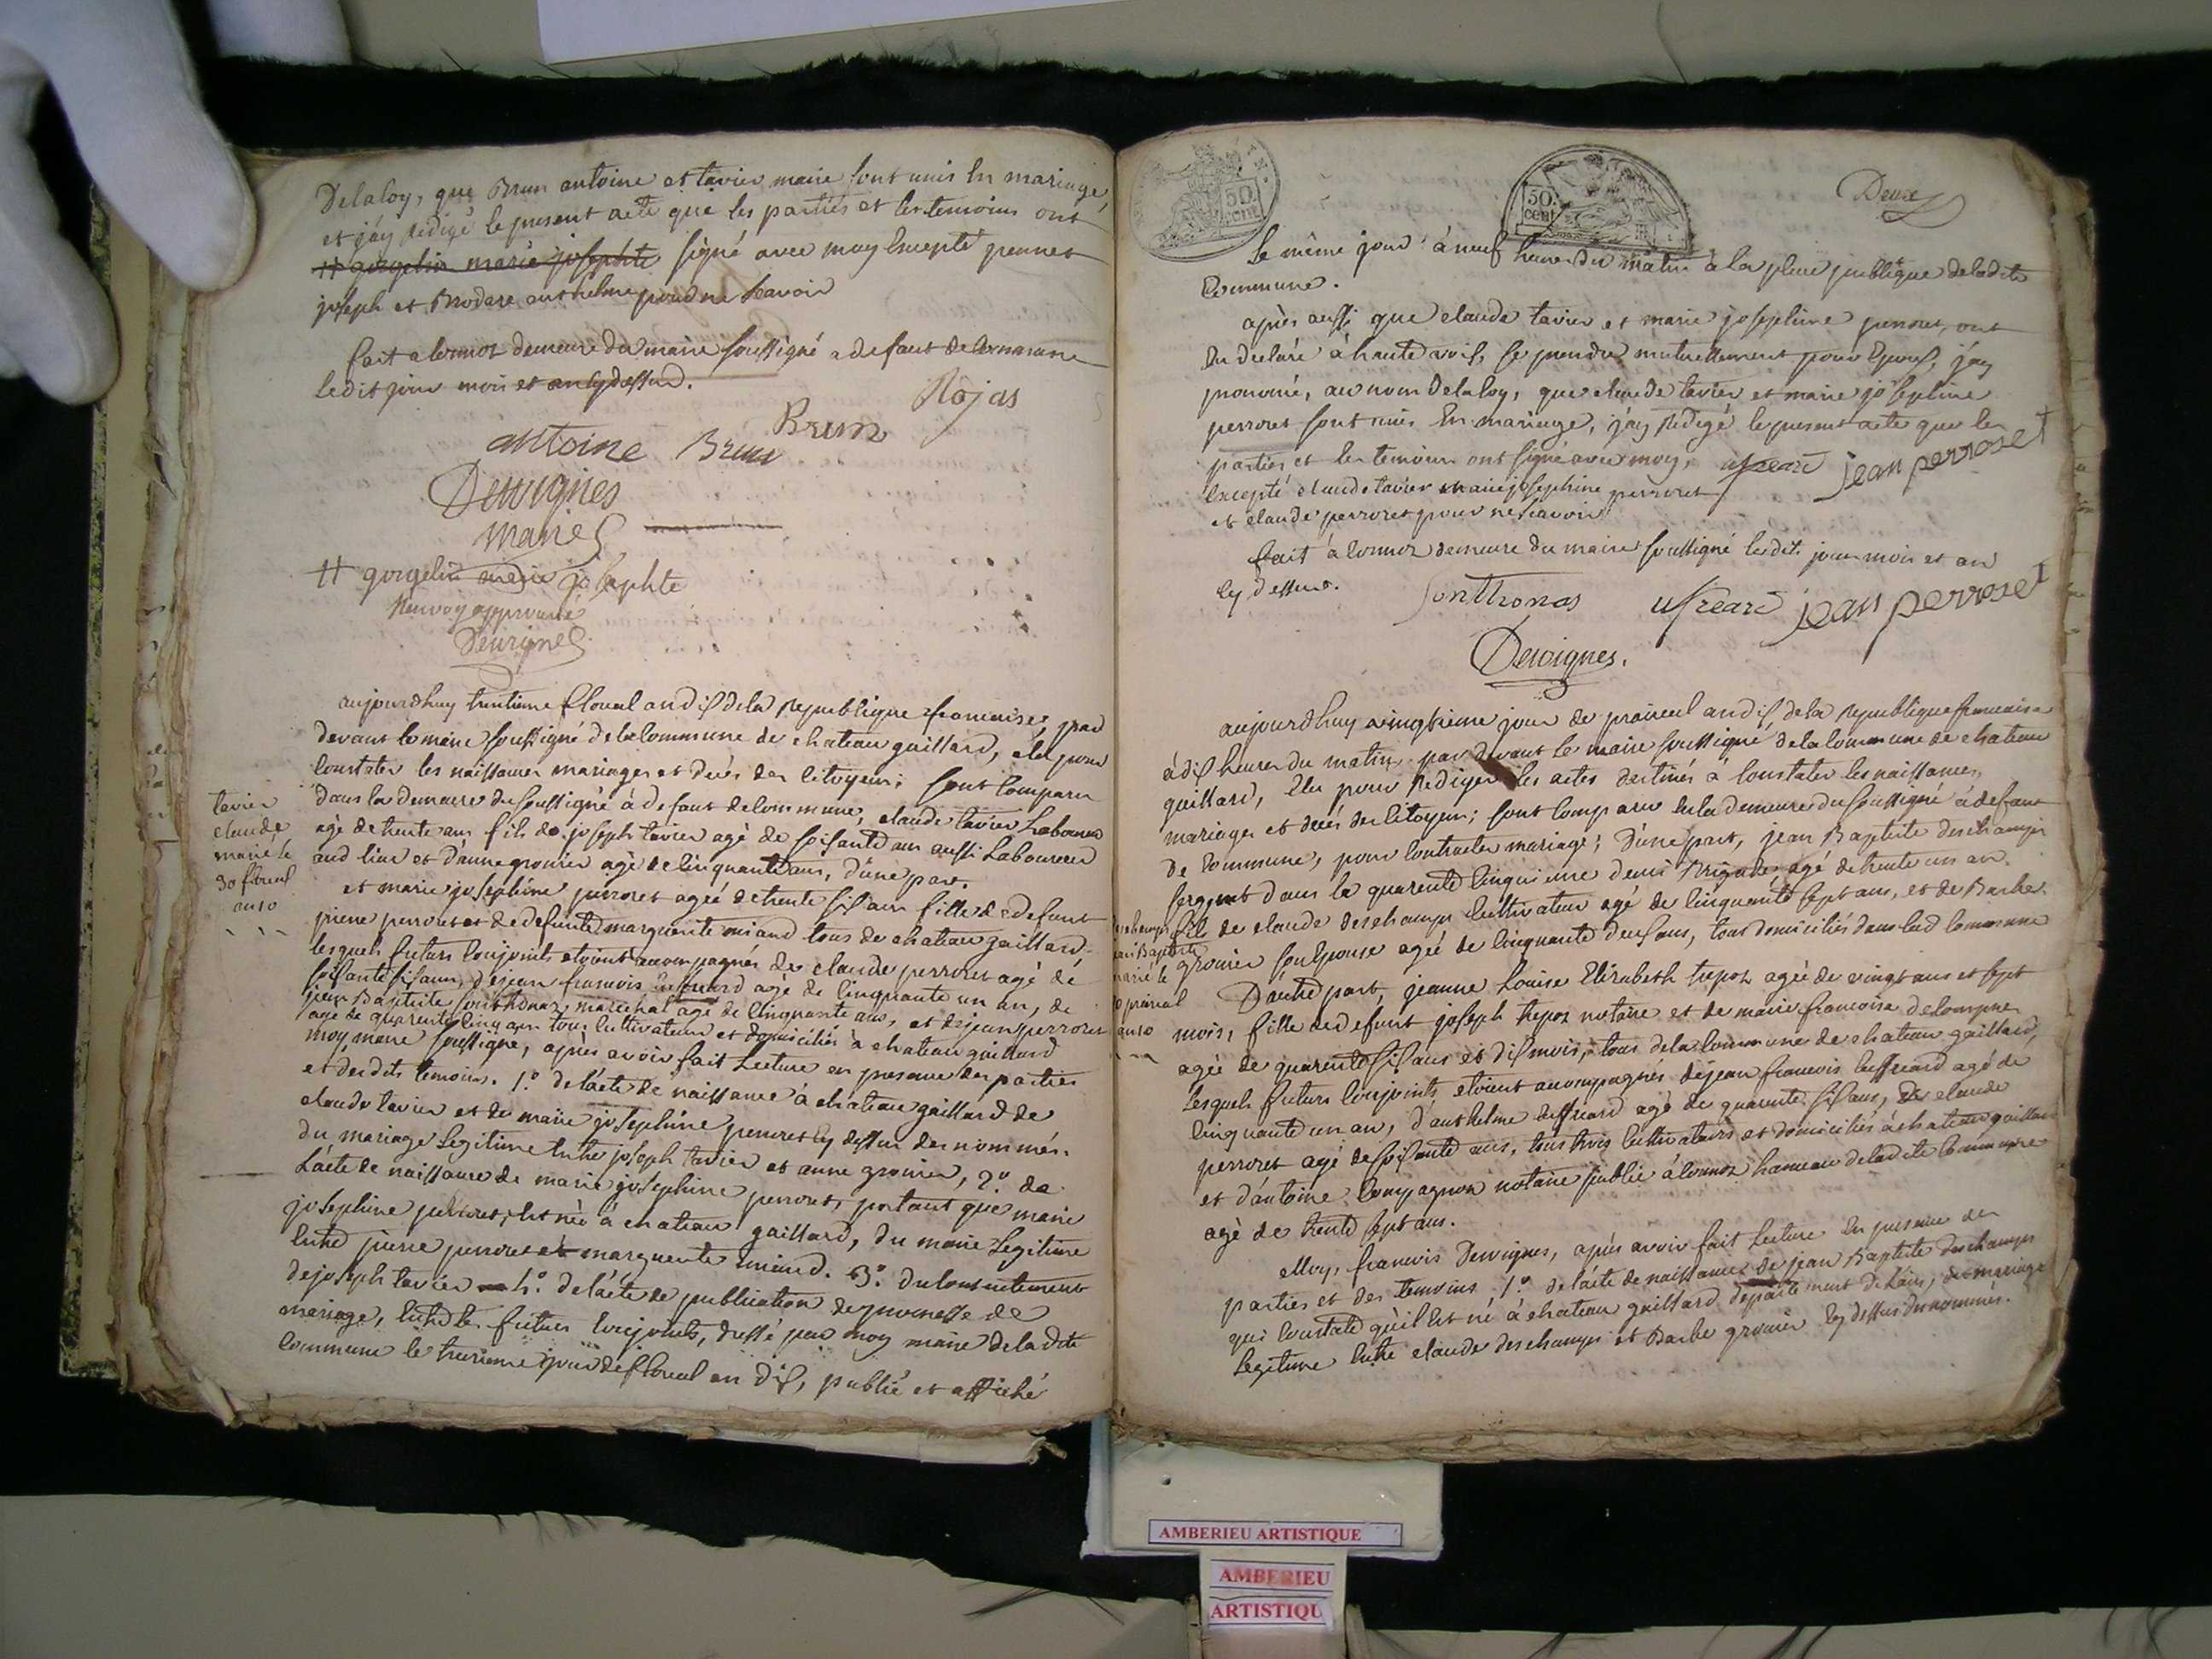 Delaloy, que Brun antoine et tavier marie sont unis En mariage,
et j'ay Redigé le present acte que les parties et les temoins ont
# gorgelin marie josephte signé avec moy Excepté perret
joseph et Brodere anthelme pour ne scavoir
fait a Cormoz demeure du maire soussigné a defaut de Commune
ledit jour mois et an Cydessus.
Rojas
Brun
antoine Brun
Dervignes
maire
# gorgelin marie josephte
Renvoy approuvé
Dervignes
aujourdhuy trentieme floreal an dix de la Republique francaise, par
devant le maire soussigné de la Commune de chateau gaillard, elu pour
Constater les naissances mariages et deces des Citoyens; sont Comparu
dans la demeure du soussigné à defaut de Commune, claude tavier Laboureur
agé de trente ans fils de joseph tavier agé de soisante ans aussi Laboureur
aud lieu et d'anne gronier agé de Cinquante ans, d'une part.
et marie josephine perroset agée de trente six ans fille de defunt
pierre perroset et de defunte marguerite miand tous de chateau gaillard.
lesquels futurs Conjoints etoient accompagnés de claude perroset agé de
soisante six ans, de jean francois uffreard agé de Cinquante un an, de
jean Baptiste jonthonas marechal agé de Cinquante ans, et de jean perroset
agé de quarente Cinq ans tous Cultivateurs et domiciliés à chateau gaillard
moy maire soussigné, après avoir fait Lecture en presence des parties
et desdits temoins. 1.° de l'acte de naissance à chateau gaillard de
claude tavier et de marie josephine perroset Cy dessus denommés.
du mariage Legitime Entre joseph tavier et anne gronier, 2.° de
L'acte de naissance de marie josephine perroset, portant que marie
josephine perroset, Est née à chateau gaillard, du marie Legitime
Entre pierre perroset et marguerite miand. 3.° du Consentement
de joseph tavier 4.° de l'acte de publication de promesse de
mariage, Entre les futurs Conjoints, dressé par moy maire de ladite
Commune le treizieme jour de floreal an dix, publié et affiché
tavier
claude
marié le
30 floreal
an 10
50. cent
50. cent
Deux
Le même jour à neuf heures du matin à la place publique de ladite
Commune.
après aussi que claude tavier et marie josephine perroset, ont
Eu declaré à haute voix, se prendre mutuellement pour Epoux, j'ay
prononcé, au nom de la loy, que claude tavier et marie josephine
perroset sont unis En mariage, j'ay Redigé le present acte que les
parties et les temoins ont signé avec moy, ufreard jean perroset
Excepté claude tavier marie josephine perroset
et claude perroset pour ne scavoir
fait à Cormoz demeure du maire soussigné lesdits jour mois et an
Cy dessus.
Jonthonas ufreard jean perroset
Dervignes.
aujourdhuy vingtieme jour de prairial an dix, de la Republique francaise
à dix heures du matin, par devant le maire soussigné de la Commune de chateau
gaillard, Elu pour Rediger les actes destinés à Constater les naissances,
mariages et deces des Citoyens; sont Comparus En la demeure du soussigné à defaut
de Commune, pour Contracter mariage; D'une part, jean Baptiste deschamps
sergent dans la quarente Cinquieme demie Brigade agé de trente un an.
fils de claude deschamps Cultivateur agé de Cinquante sept ans, et de Barbe
gronier son Epouse agée de Cinquante deux ans, tous domiciliés dans lad Commune
D'autre part, jeanne Louise Elizabeth trepoz agée de vingt ans et sept
mois, fille de defunt joseph trepoz notaire et de marie francoise delompnes
agée de quarente six ans et dix mois, tous de la Commune de chateau gaillard,
Lesquels futurs Conjoints, etoient accompagnés de jean francois uffreard agé de
Cinquante un an, d'anthelme uffreard agé de quarente six ans, de claude
perroset agé de soisante ans, tous trois Cultivateurs et domiciliés à chateau gaillard
et d'antoine Compagnon notaire public à Cormoz hameau de ladite Commune
agé de trente sept ans.
Moy, francois Dervignes, après avoir fait Lecture En presence des
parties et des temoins 1.° de l'acte de naissance de jean Baptiste deschamps
qui Constate qu'il Est né à chateau gaillard departement de L'ain, du mariage
Legitime Entre claude deschamps et Barbe gronier Cy dessus denommés.
deschamps
jean Baptiste
marié le
prairial
an 10
AMBERIEU ARTISTIQUE
AMBERIEU
ARTISTIQU